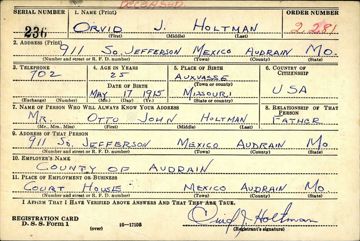 DECEASED
SERIAL NUMBER 1. NAME (Print) ORDER NUMBER
236 ORVID J. HOLTMAN 2,281
(First) (Middle) (Last)
2. ADDRESS (Print)
911 So. JEFFERSON MEXICO AUDRAIN MO.
(Number and street or R. F. D. number) (Town) (County) (State)
3. TELEPHONE 4. AGE IN YEARS 5. PLACE OF BIRTH 6. COUNTRY OF CITIZENSHIP
702 25 AUXVASSE
DATE OF BIRTH (Town or county)
MAY 17 1915 MISSOURI USA
(Exchange) (Number) (Mo.) (Day) (Yr.) (State or country)
7. NAME OF PERSON WHO WILL ALWAYS KNOW YOUR ADDRESS 8. RELATIONSHIP OF THAT PERSON
MR. OTTO JOHN HOLTMAN FATHER
(Mr., Mrs., Miss) (First) (Middle) (Last)
9. ADDRESS OF THAT PERSON
911 So. JEFFERSON MEXICO AUDRAIN MO
(Number and street or R. F. D. number) (Town) (County) (State)
10. EMPLOYER'S NAME
COUNTY OF AUDRAIN
11. PLACE OF EMPLOYMENT OR BUSINESS
COURT HOUSE MEXICO AUDRAIN MO
(Number and street or R. F. D. number) (Town) (County) (State)
I AFFIRM THAT I HAVE VERIFIED ABOVE ANSWERS AND THAT THEY ARE TRUE.
REGISTRATION CARD
D. S. S. Form 1 16—17105 Orvid J. Holtman
(over) (Registrant's signature)